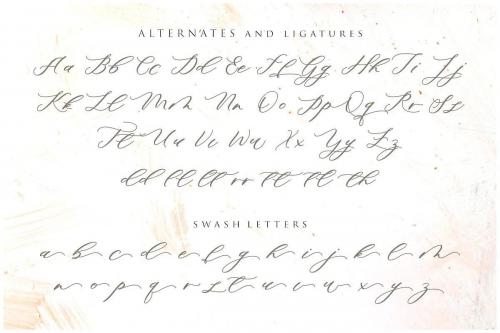 ALTERNATES AND LIGATURES
Aa Bb Cc Dd Ee Ff Gg Hh Ii Jj
Kk Ll Mm Nn Oo Pp Qq Rr Ss
Tt Uu Vv Ww Xx Yy Zz
dd ff ll rr tt fl th
SWASH LETTERS
a b c d e f g h i j k l m
n o p q r s t u v w x y z